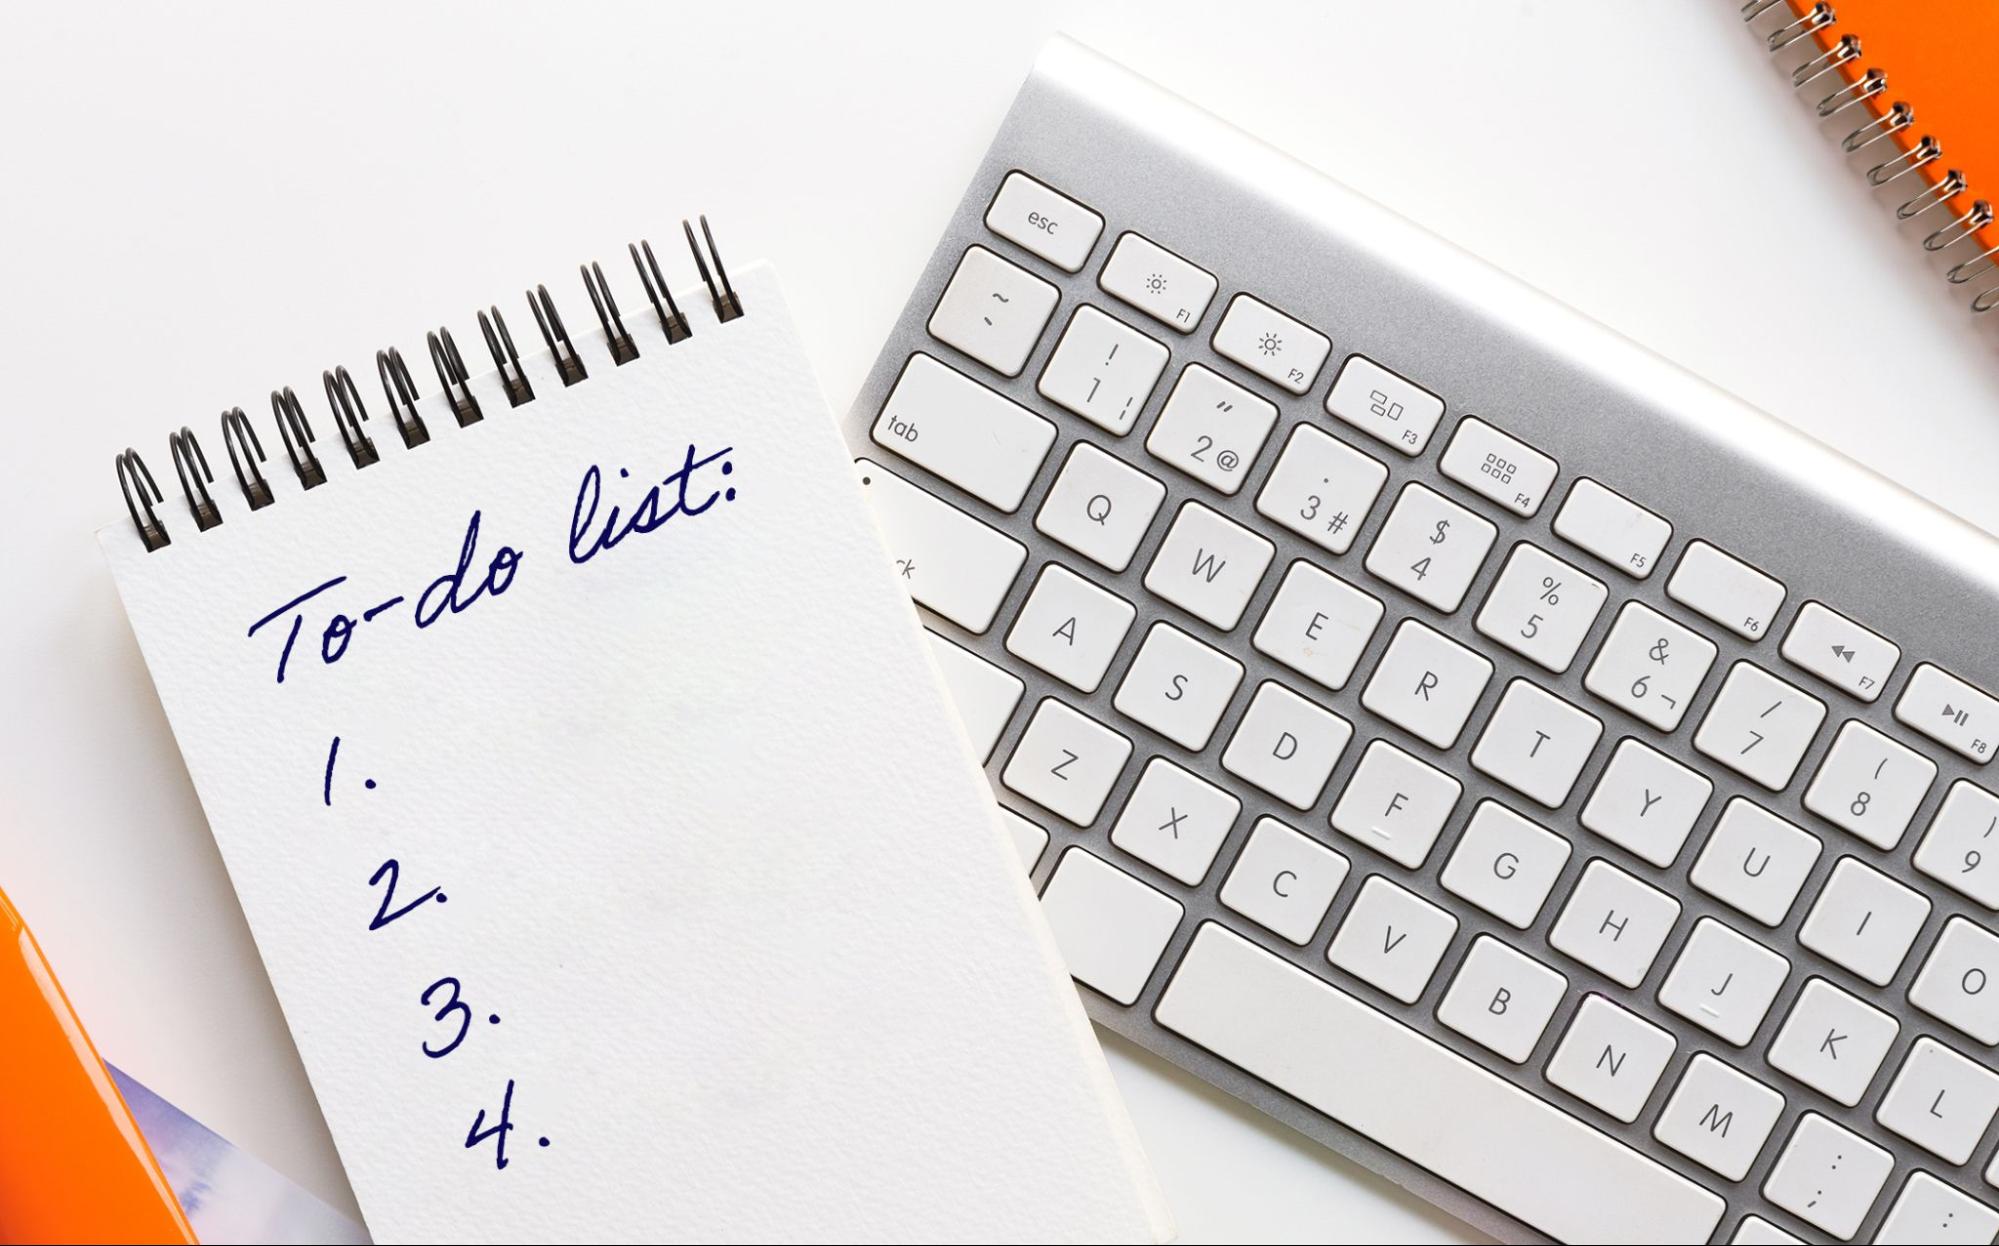 To-do list:
1.
2.
3.
4.
esc
F1
F2
F3
F4
F5
F6
F7
F8
~
!
1 ¦
"
2 @
·
3 #
$
4
%
5
&
6 ¬
/
7
(
8
)
9
tab
Q
W
E
R
T
Y
U
I
O
ck
A
S
D
F
G
H
J
K
L
Z
X
C
V
B
N
M
:
;